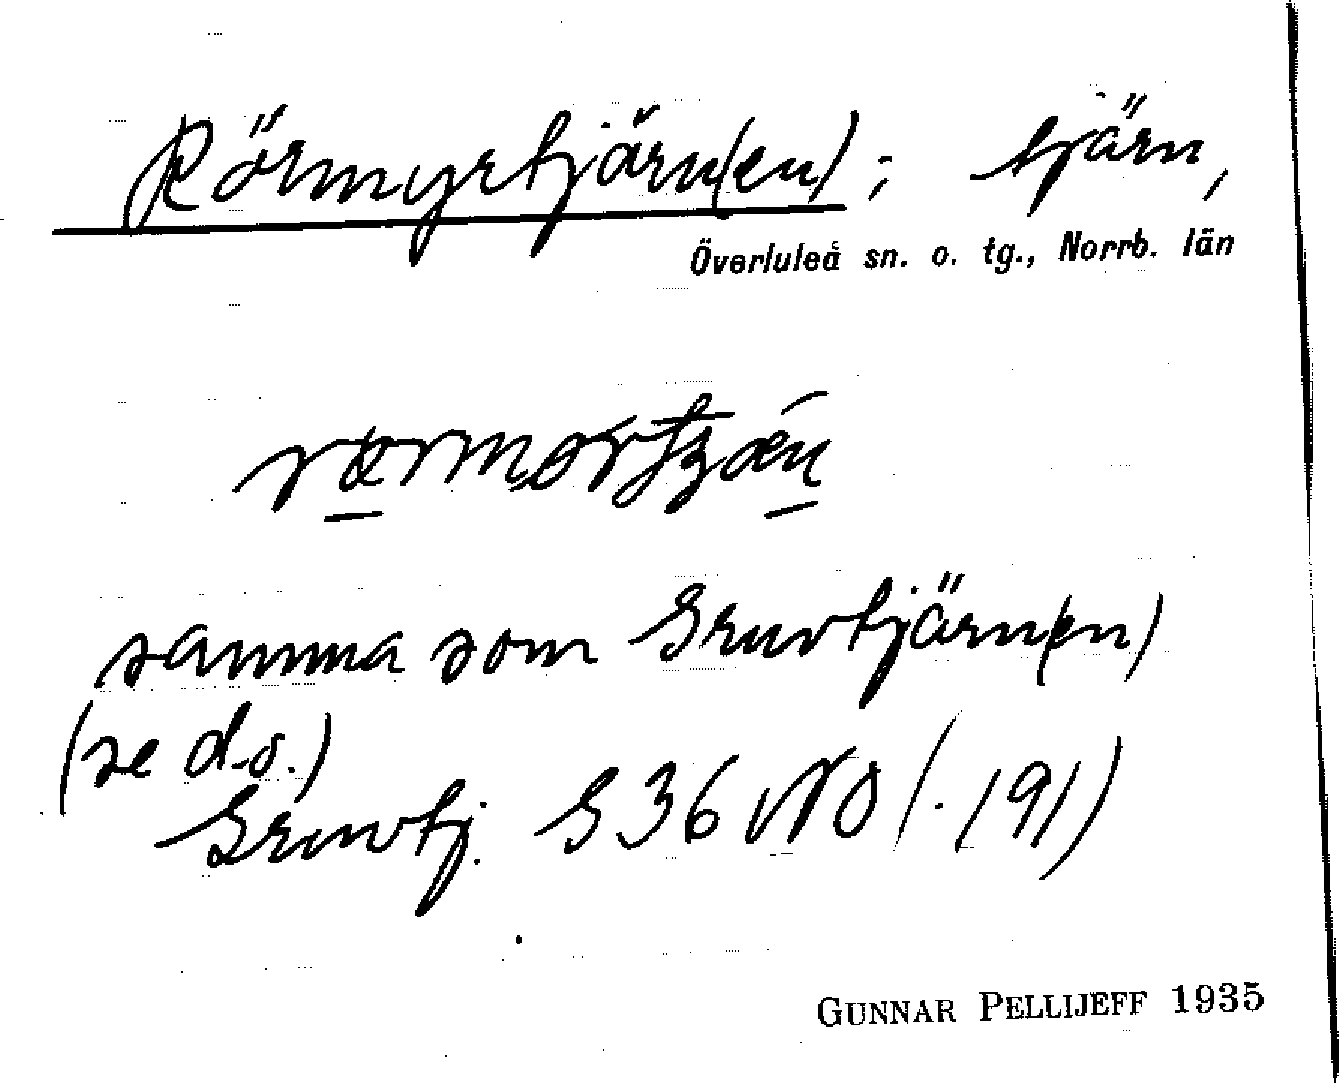 Rörmyrtjärn(en); tjärn,
Överluleå sn. o. tg., Norrb. län
samma som Gruvtjärn(en)
(se d.o.)
Gruvtj. G 36 NO (.191)
GUNNAR PELLIJEFF 1935